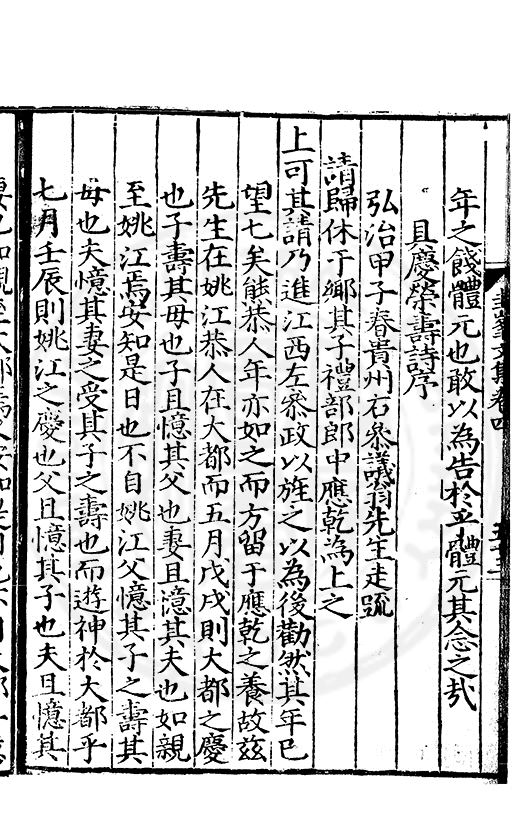 年之餞體元也敢以為告於乎體元其念之哉
具慶榮壽詩序
弘治甲子春貴州右叅議翁先生走疏
請歸休于鄉其子禮部郎中應乾為上之
上可其請乃進江西左叅政以旌之以為後勸然其年已
望七矣熊恭人年亦如之而方留于應乾之養故茲
先生在姚江恭人在大都而五月戊戌則大都之慶
也子壽其母也子且憶其父也妻且憶其夫也如親
至姚江焉安知是日也不自姚江父憶其子之壽其
母也夫憶其妻之受其子之壽也而遊神於大都乎
七月壬辰則姚江之慶也父且憶其子也夫且憶其